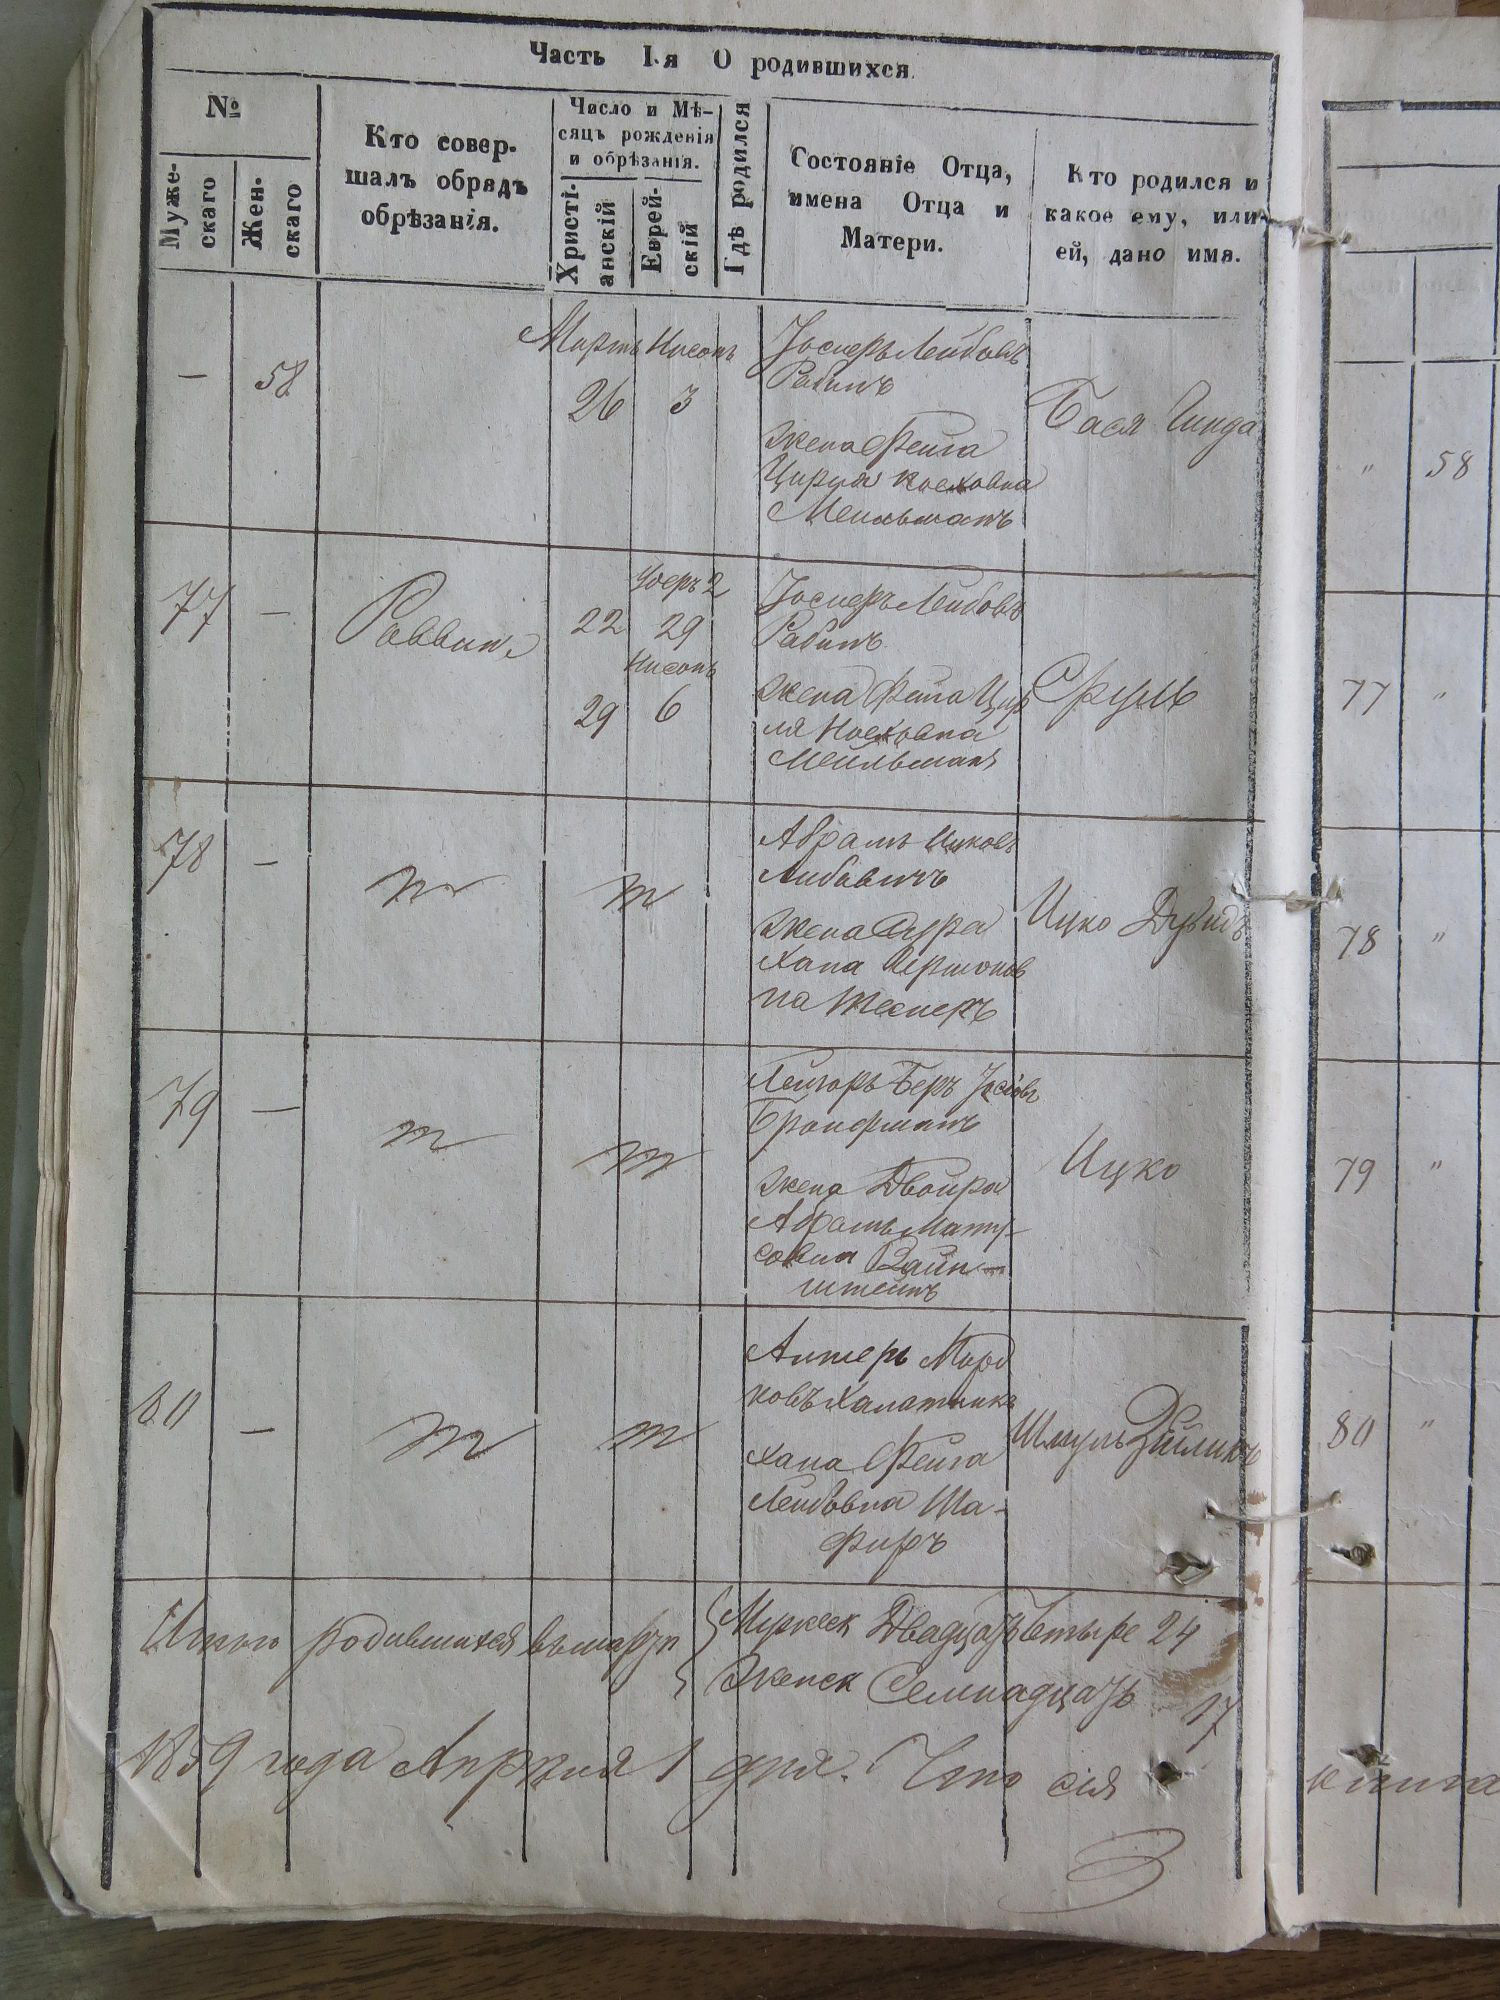 Часть I-я О родившихся.
№
Муже-
скаго
Жен-
скаго
Кто совер-
шалъ обрядъ
обрѣзанія.
Число и Мѣ-
сяцъ рожденія
и обрѣзанія.
Христі-
анскій
Еврей-
скій
Гдѣ родился
Состояніе Отца,
имена Отца и
Матери.
Кто родился и
какое ему, или
ей, дано имя.
— 58
Мартъ Нисонъ
26 3
Лейбовъ
Рабинъ
Жена Фейга
Цирля
Мейльманъ
Бася Гинда
" 58
77 —
Раввинъ
2
22 29
Нисонъ
29 6
Лейбовъ
Рабинъ
Жена Фейга Цир
ля
Мейльманъ
Сруль
77 "
78 —
Абрамъ Ицковъ
Либавичъ
Жена Сура
Хана Гершонов
на
Ицко Дувидъ
78 "
79 —
Беръ
Бронфманъ
Жена Двойра
Абрамъ Мату-
совна Вайн-
штейнъ
Ицко
79 "
80 —
Алтеръ Морд
ковъ Халатникъ
Хана Фейга
Лейбовна Ша-
фиръ
Шмуль Зейликъ
80 "
Итого родившихся въ мартѣ
Мужеск Двадцать четыре 24
Женск Семнадцать 17
1859 года Апрѣля 1 дня. Что сія книга